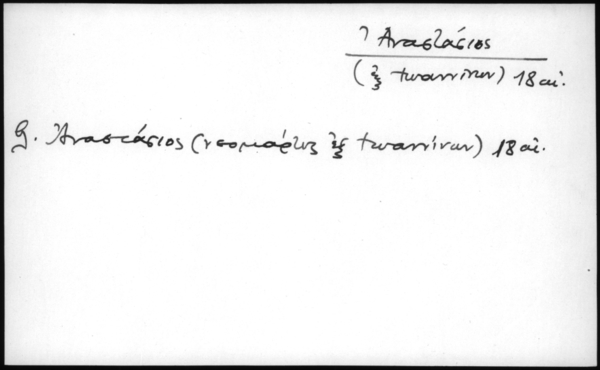 Ἀναστάσιος
(ἐξ Ἰωαννίνων) 18 αἰ.
Ἀναστάσιος (νεομάρτυς ἐξ Ἰωαννίνων) 18 αἰ.